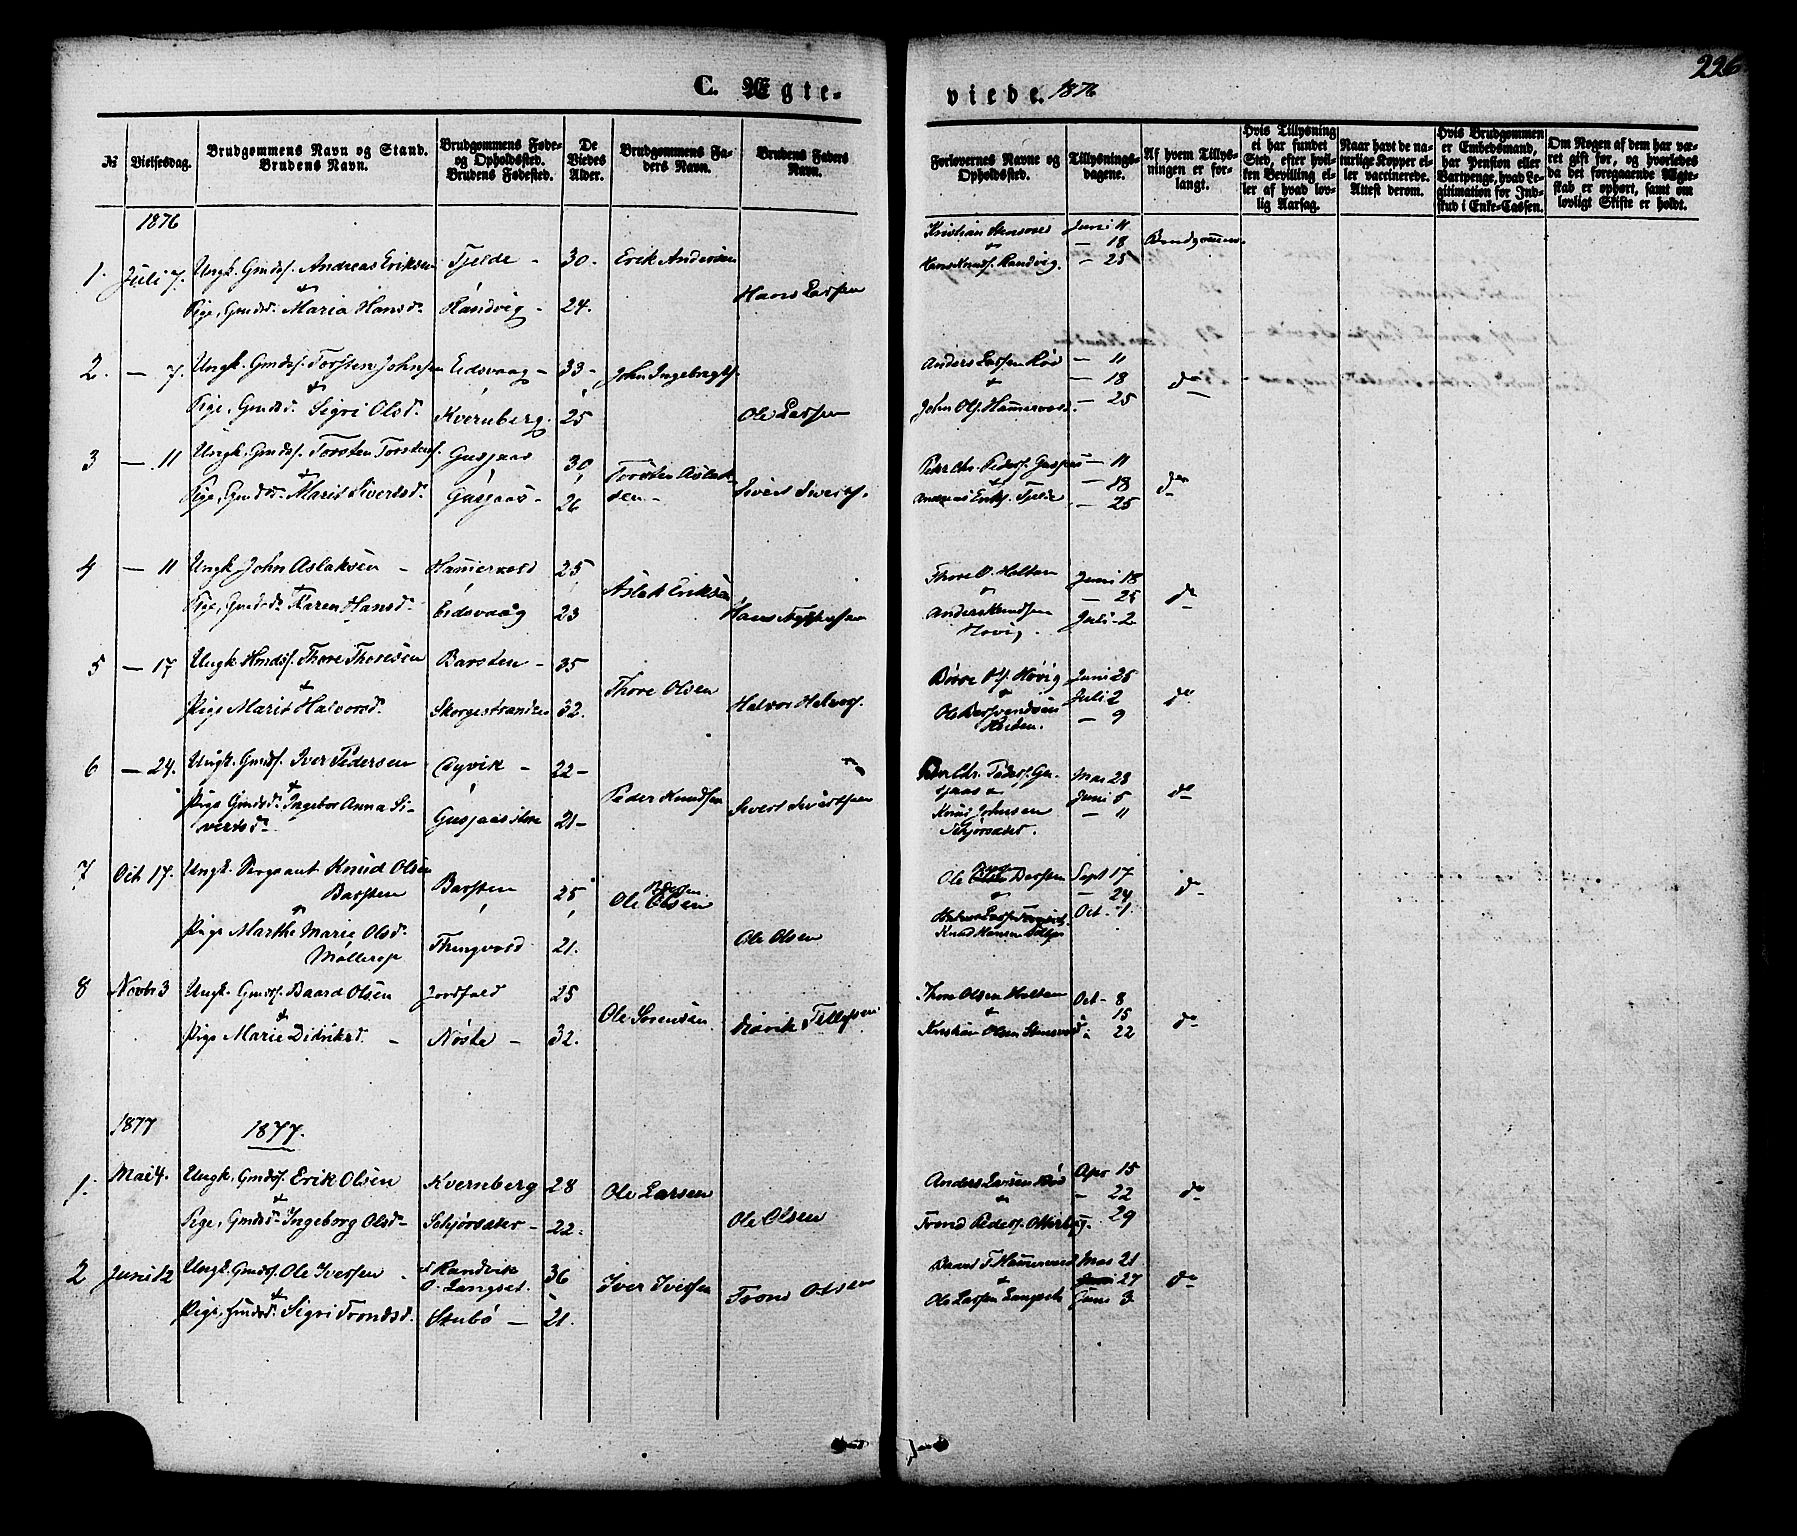 226
C. Ægte-
viede. 1876
№
Vielsesdag.
Brudgommens Navn og Stand.
Brudens Navn.
Brudgommens Føde-
og Opholdssted.
Brudens Fødested.
De
Viedes
Alder.
Brudgommens Fa-
ders Navn.
Brudens Faders
Navn.
Forlovernes Navne og
Opholdssted.
Tillysnings-
dagene.
Af hvem Tillys-
ningen er for-
langt.
Hvis Tillysning
ei har fundet
Sted, efter hvil-
ken Bevilling el-
ler af hvad lov-
lig Aarsag.
Naar havt de na-
turlige Kopper el-
ler vaccinerede.
Attest derom.
Hvis Brudgommen
er Embedsmand,
har Pension eller
Vartpenge, hvad Le-
gitimation for Ind-
skud i Enke-Cassen.
Om Nogen af dem har væ-
ret gift før, og hvorledes
da det foregaaende Ægte-
skab er ophørt, samt om
lovligt Skifte er holdt.
1876
1. Juli 7. Ungk. Gmds. Andreas Eriksen Tjelde - 30. Erik Andersen
& Hans Larsen
Pige, Gmdsd. Maria Hansd. Randvig - 24.
Kristian Stensvold Juni 11
& - 18 Brudgommen
Hans Knuds. Randvig. - 25
2. - 7. Ungk. Gmds. Torsten Johnsen Eidsvaag - 33 - John Ingebrigts.
&
Pige, Gmdsd. Sigri Olsd. Kvernberg. 25 Ole Larsen
Anders Larsen Rød - 11
& - 18 do
John Ols. Hammervold. - 25
3 - 11 Ungk. Gmds. Torsten Torstens. Gusjaas 30 Torsten Aslak-
& sen -
Pige, Gmdsd. Marit Sivertsd. Gusjaas - 26 Sivert Siverts.
Peder Chr. Peders. Gusjaas - 11
& - 18 do
Andreas Eriks. Tjelde - 25
4 - 11 Ungk. John Aslaksen - Hammervold 25 Aslak Eriksen
&
Pige, Gmdsd. Karen Hansd. Eidsvaag 23 Hans
Thore O. Holten Juni 18
& - 25 do
Anders Knudsen Juli 2
Hovig.
5 - 17 Ungk. Hmds. Thore Thoresen Barsten - 35 Thore Olsen
&
Pige Marit Halvorsd. Skorgestranden 32. Halvor Halvors.
Børre Ols. Høvig Juni 25
& Juli 2 do
Ole - 9
6 - 24. Ungk. Gmds. Iver Pedersen 22 - Peder Knudsen
&
Pige Gmdsd. Ingebor Anna Si-
vertsd. Gusjaas store 21 - Sivert Sivertsen
Peder Chr. Peders. Gu- Mai 28
sjaas & Juni 5 do
Knud Johnsen - 11
7 Oct 17. Ungk. Sergeant Knud Olsen
Barsten Barsten 25 Ole Olsen
&
Pige Marthe Marie Olsd.
Møllerop Thingvold 21. Ole Olsen
Ole Sept 17
& - 24 do
Oct - 1
Knud Hansen
8 Novbr 3 Ungk. Gmds. Baard Olsen Jordfald 25 Ole Sørensen
&
Pige Marie Didriksd. - Nøste - 32.
Thore Olsen Holten Oct - 8
& 15
Kristian Olsen Stensvold - 22 do
1877 1877.
1. Mai 4. Ungk. Gmds. Erik Olsen Kvernberg 28 Ole Larsen
&
Pige, Gmdsd. Ingeborg Olsd. 22. Ole Olsen
Anders Larsen Rød Apr 15
& - 22 do
Trond Peders. 29
2 Juni 12 Ungk. Gmds. Ole Iversen - f. Randvik
O. Langset. 36 Iver Iversen
&
Pige, Gmdsd. Sigri Trondsd. Stubø - 21. Trond Olsen
Baard T. Hammervold Mai 21
& 27 do
Ole Larsen Langset Juni 3